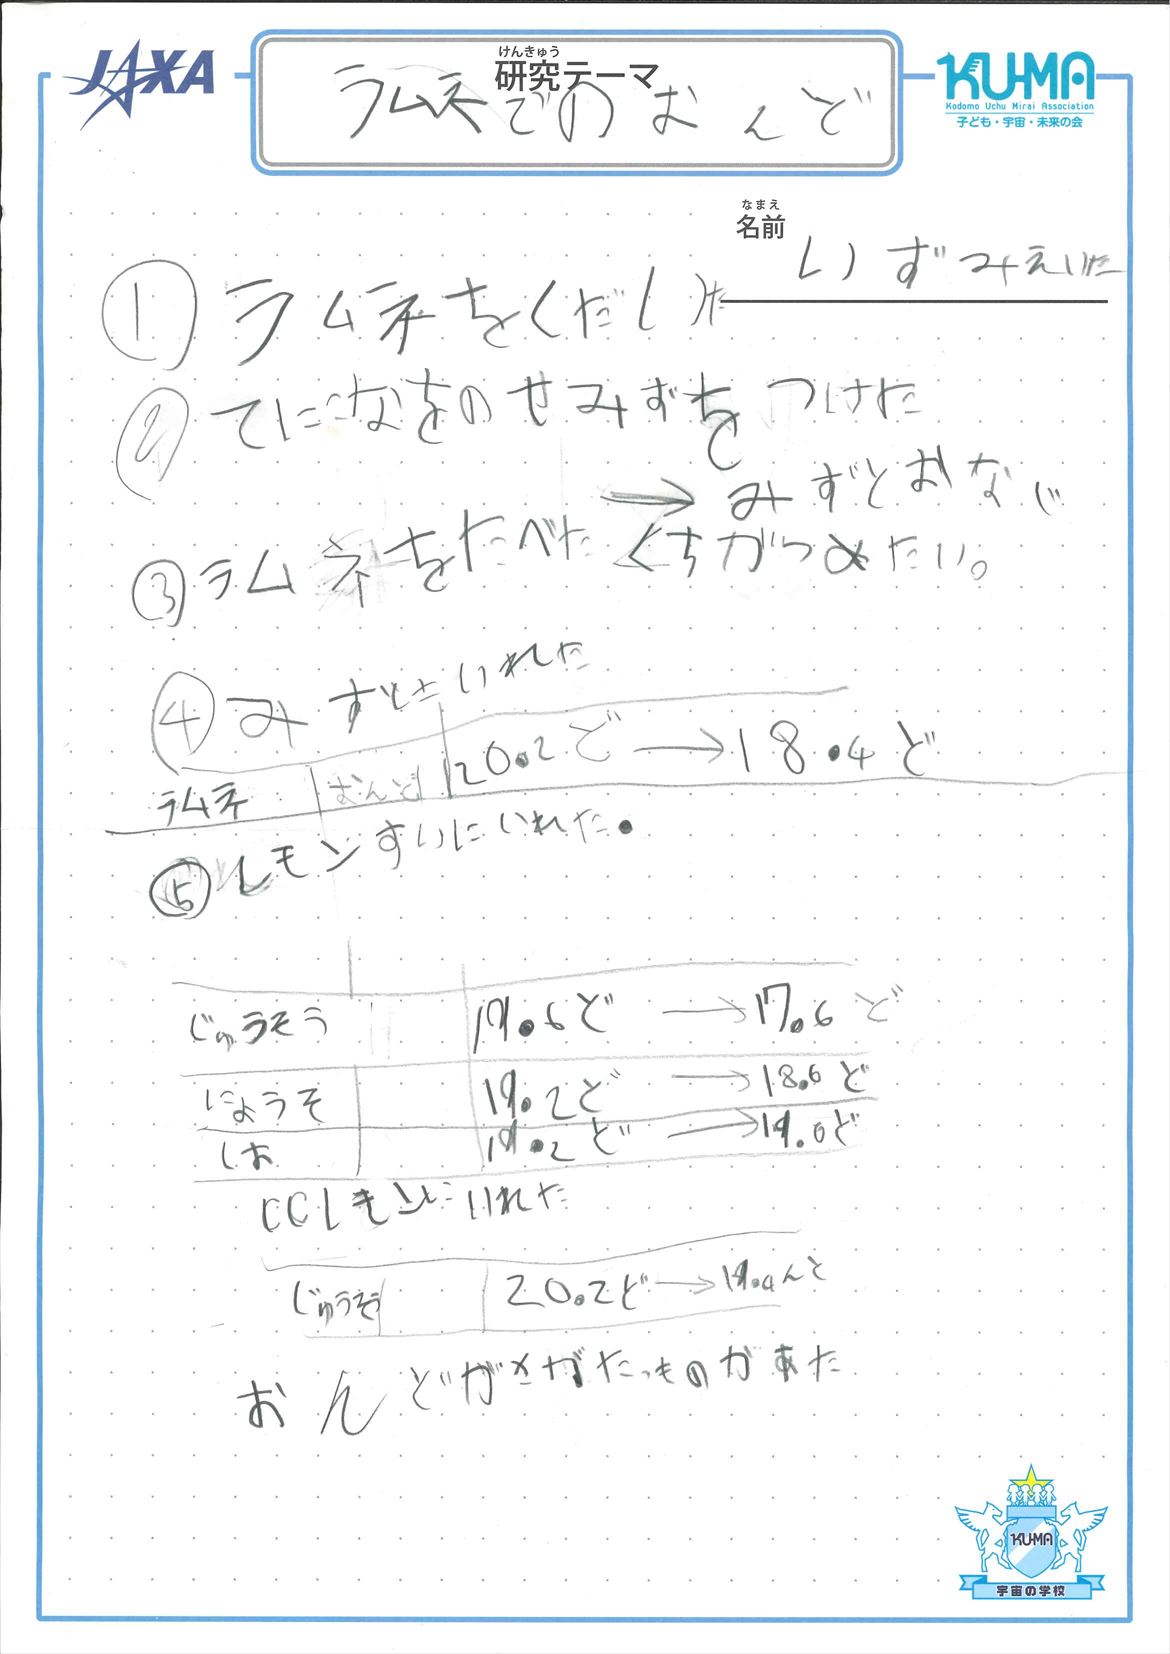 JAXA
けんきゅう
研究テーマ
ラムネでのおんど
KU-MA
Kodomo Uchu Mirai Association
子ども・宇宙・未来の会
なまえ
名前
いずみえいた
① ラムネをくだいた
② てにこなをのせみずをつけた
③ ラムネをたべた → みずとおなじ
くちがつめたい。
④ みずにいれた
ラムネ おんど 20.2ど → 18.4ど
⑤ レモンすいにいれた.
じゅうそう 19.6ど → 17.6ど
にょうそ 19.2ど → 18.6ど
しお 19.2ど → 19.0ど
CCレモンにいれた
じゅうそう 20.2ど → 19.4んど
おんどがさがたっものがあた
KU-MA
宇宙の学校